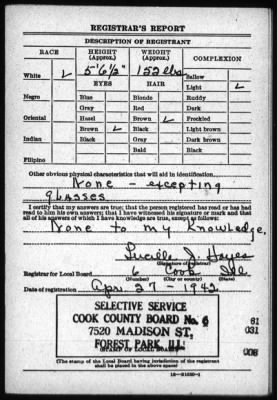 REGISTRAR'S REPORT
DESCRIPTION OF REGISTRANT
RACE HEIGHT (Approx.) WEIGHT (Approx.) COMPLEXION
5' 6½" 152 lbs.
White Sallow
EYES HAIR Light
Negro Blue Blonde Ruddy
Gray Red Dark
Oriental Hazel Brown Freckled
Brown Black Light brown
Indian Black Gray Dark brown
Bald Black
Filipino
Other obvious physical characteristics that will aid in identification
None - excepting
glasses
I certify that my answers are true; that the person registered has read or has had
read to him his own answers; that I have witnessed his signature or mark and that
all of his answers of which I have knowledge are true, except as follows:
None to my knowledge.
Lucille J. Hayes
Registrar for Local Board 6 Cook Ill
(Number) (City or county) (State)
Date of registration Apr. 27 - 1942
SELECTIVE SERVICE
COOK COUNTY BOARD No. 6
7520 MADISON ST,
FOREST PARK, ILL.
61
031
006
(STAMP OF LOCAL BOARD)
(The stamp of the Local Board having jurisdiction of the registrant
shall be placed in the above space)